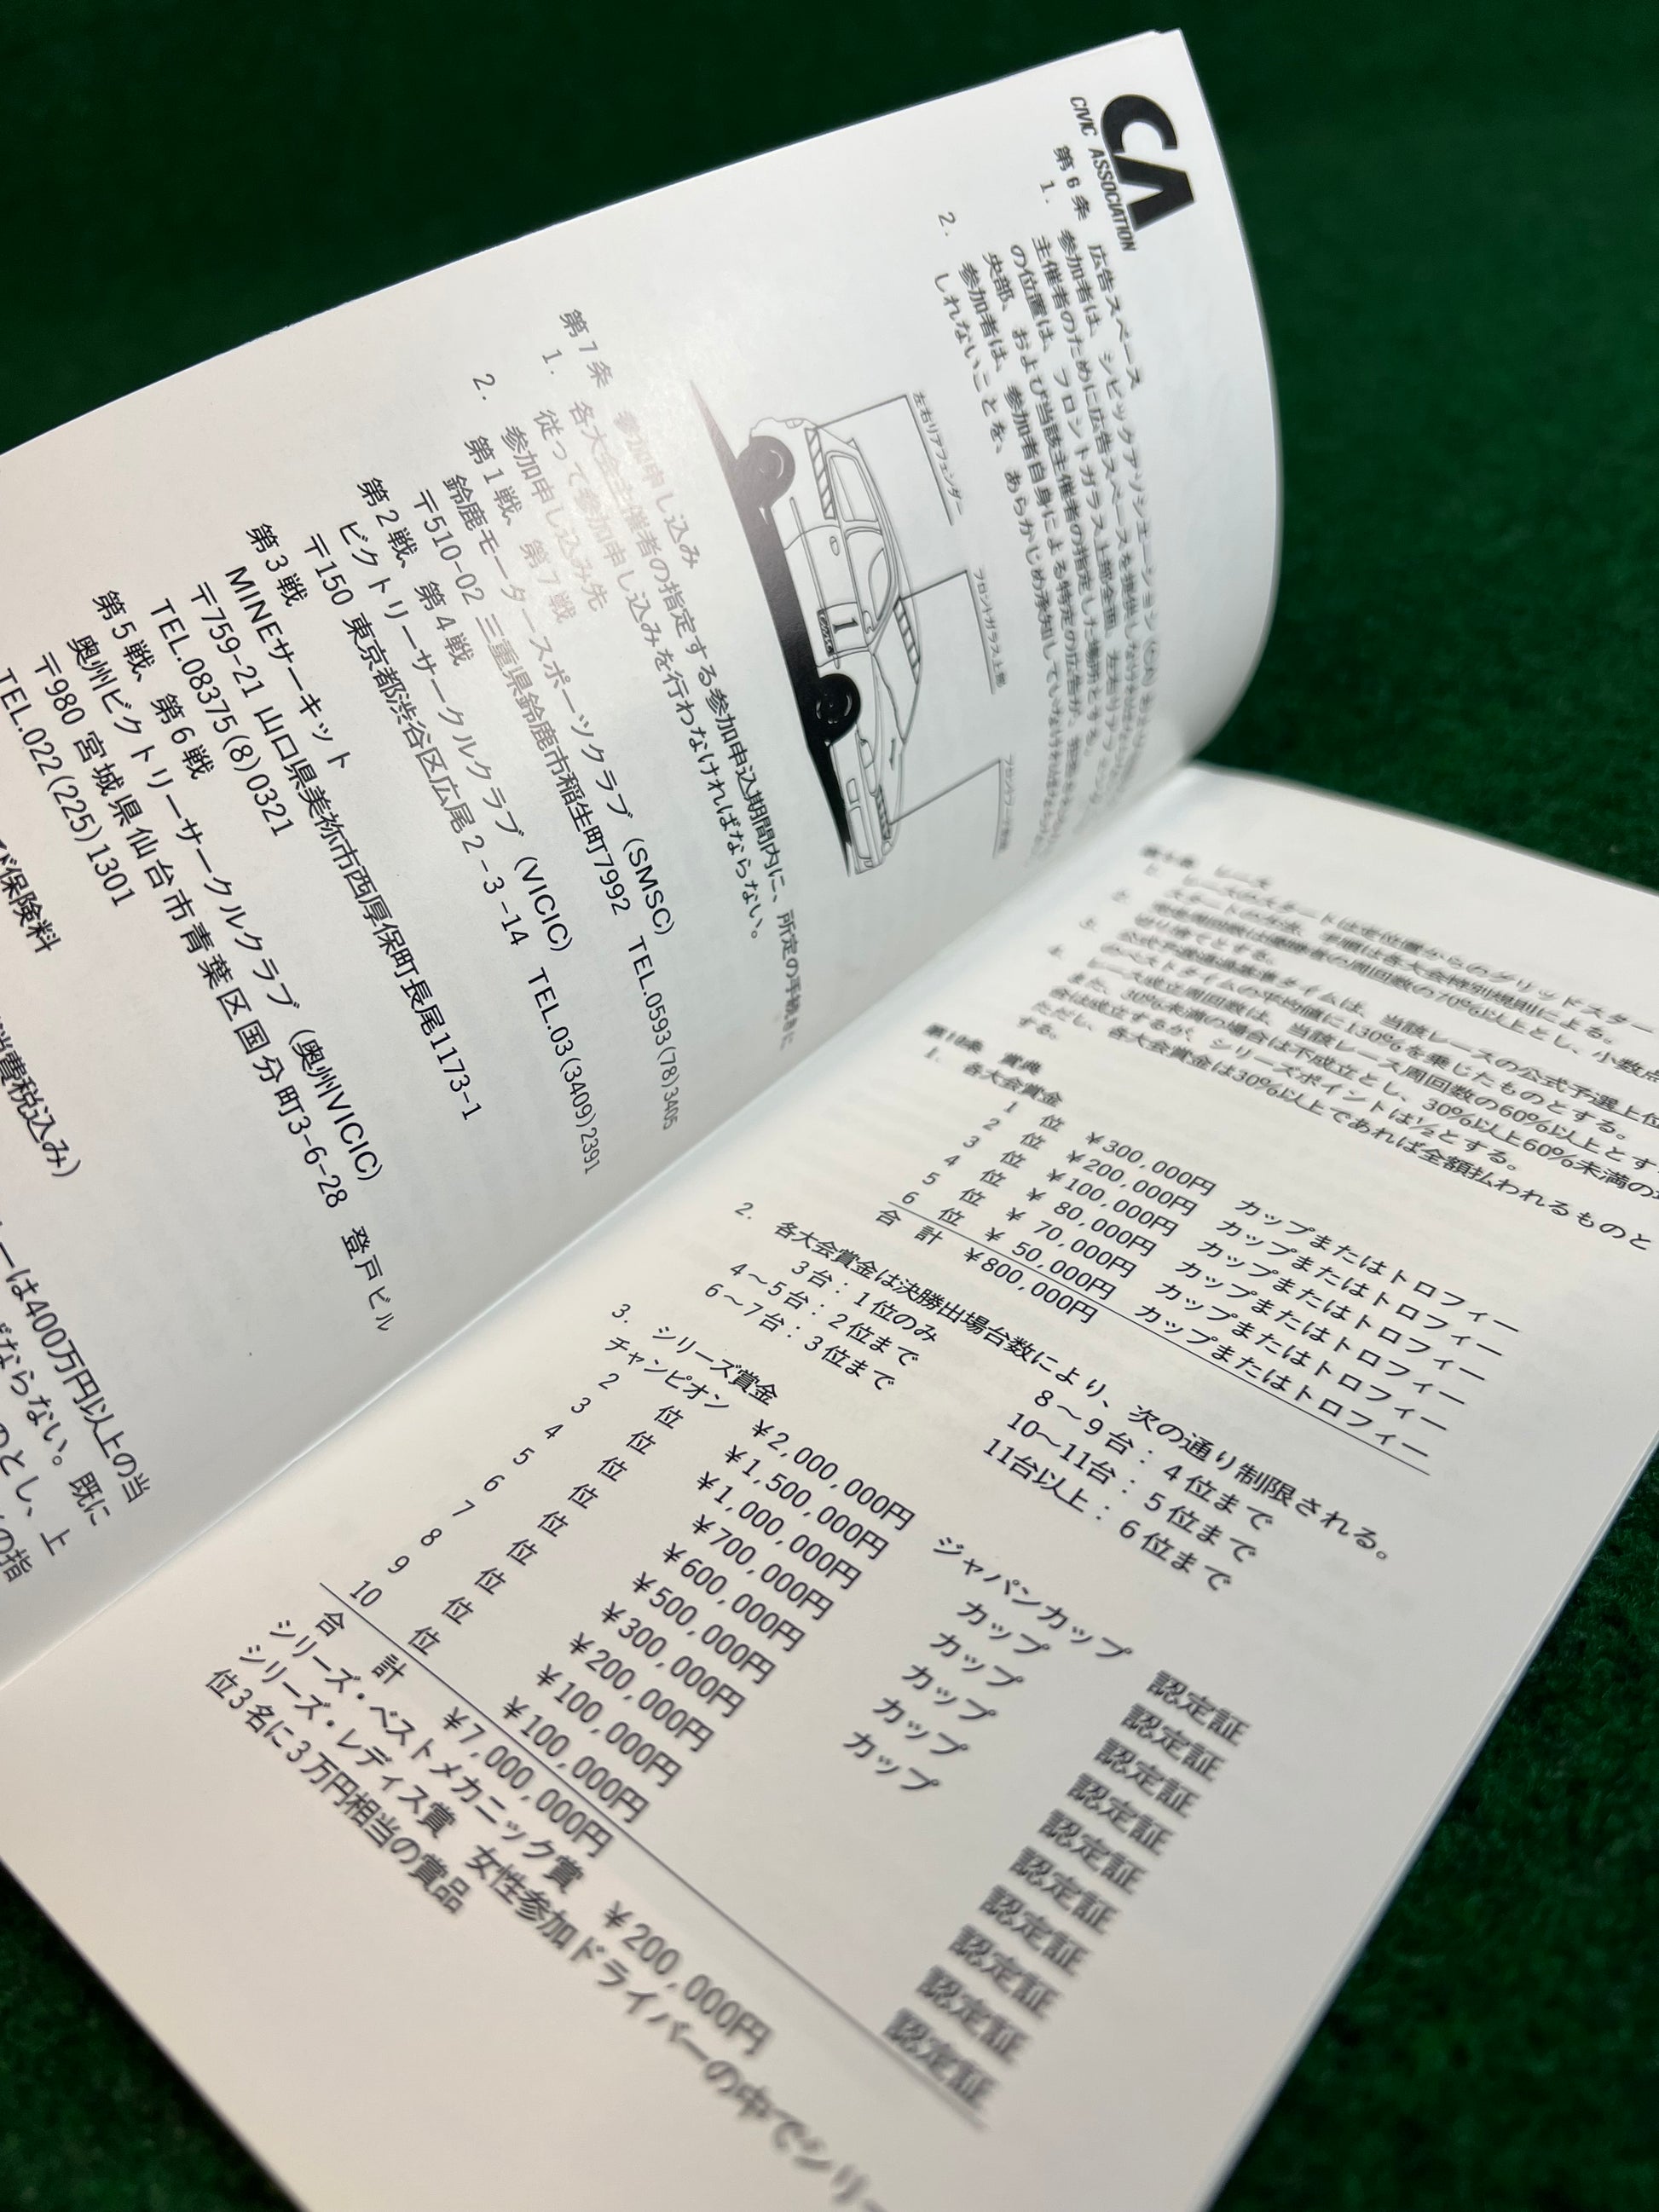 CA
CIVIC ASSOCIATION
第6条 広告スペース
1. 参加者は、シビックアソシエーション
主催者のために広告スペースを提供しなければ
の位置は、フロントガラス上部全面、左右リアフェンダー
央部、および当該主催者の指定した場所とする。
2. 参加者は、参加者自身による特定の広告が、
しれないことを、あらかじめ承知していなければ
左右リアフェンダー
フロントガラス上部
1
第7条 参加申し込み
1. 各大会主催者の指定する参加申込期間内に、所定の手続きに
従って参加申し込みを行わなければならない。
2. 参加申し込み先
第1戦、第7戦
鈴鹿モータースポーツクラブ (SMSC)
〒510-02 三重県鈴鹿市稲生町7992 TEL.0593(78)3405
第2戦、第4戦
ビクトリーサークルクラブ (VICIC)
〒150 東京都渋谷区広尾2-3-14 TEL.03(3409)2391
第3戦
MINEサーキット
〒759-21 山口県美祢市西厚保町長尾1173-1
TEL.08375(8)0321
第5戦、第6戦
奥州ビクトリーサークルクラブ (奥州VICIC)
〒980 宮城県仙台市青葉区国分町3-6-28 登戸ビル
TEL.022(225)1301
保険料
消費税込み)
ーは400万円以上の当
ばならない。既に
のとし、上
の指
第9条 レース
1. レースのスタートは定位置からのグリッドスタート
スタートの方法、手順は各大会特別規則による。
2. 完走周回数は優勝者の周回数の70%以上とし、小数点
切り捨てとする。
3. 公式予選通過基準タイムは、当該レースの公式予選上位
のベストタイムの平均値に130%を乗じたものとする。
4. レース成立周回数は、当該レース周回数の60%以上とす
また、30%未満の場合は不成立とし、30%以上60%未満の
合は成立するが、シリーズポイントは½とする。
ただし、各大会賞金は30%以上であれば全額払われるものと
する。
第10条 賞典
1. 各大会賞金
1 位 ¥300,000円 カップまたはトロフィー
2 位 ¥200,000円 カップまたはトロフィー
3 位 ¥100,000円 カップまたはトロフィー
4 位 ¥ 80,000円 カップまたはトロフィー
5 位 ¥ 70,000円 カップまたはトロフィー
6 位 ¥ 50,000円 カップまたはトロフィー
合 計 ¥800,000円
2. 各大会賞金は決勝出場台数により、次の通り制限される。
3台：1位のみ 8～9台：4位まで
4～5台：2位まで 10～11台：5位まで
6～7台：3位まで 11台以上：6位まで
3. シリーズ賞金
チャンピオン ¥2,000,000円 ジャパンカップ 認定証
2 位 ¥1,500,000円 カップ 認定証
3 位 ¥1,000,000円 カップ 認定証
4 位 ¥700,000円 カップ 認定証
5 位 ¥600,000円 カップ 認定証
6 位 ¥500,000円 カップ 認定証
7 位 ¥300,000円 認定証
8 位 ¥200,000円 認定証
9 位 ¥100,000円 認定証
10 位 ¥100,000円 認定証
合 計 ¥7,000,000円
シリーズ・ベストメカニック賞 ¥200,000円
シリーズ・レディス賞 女性参加ドライバーの中でシリー
位3名に3万円相当の賞品